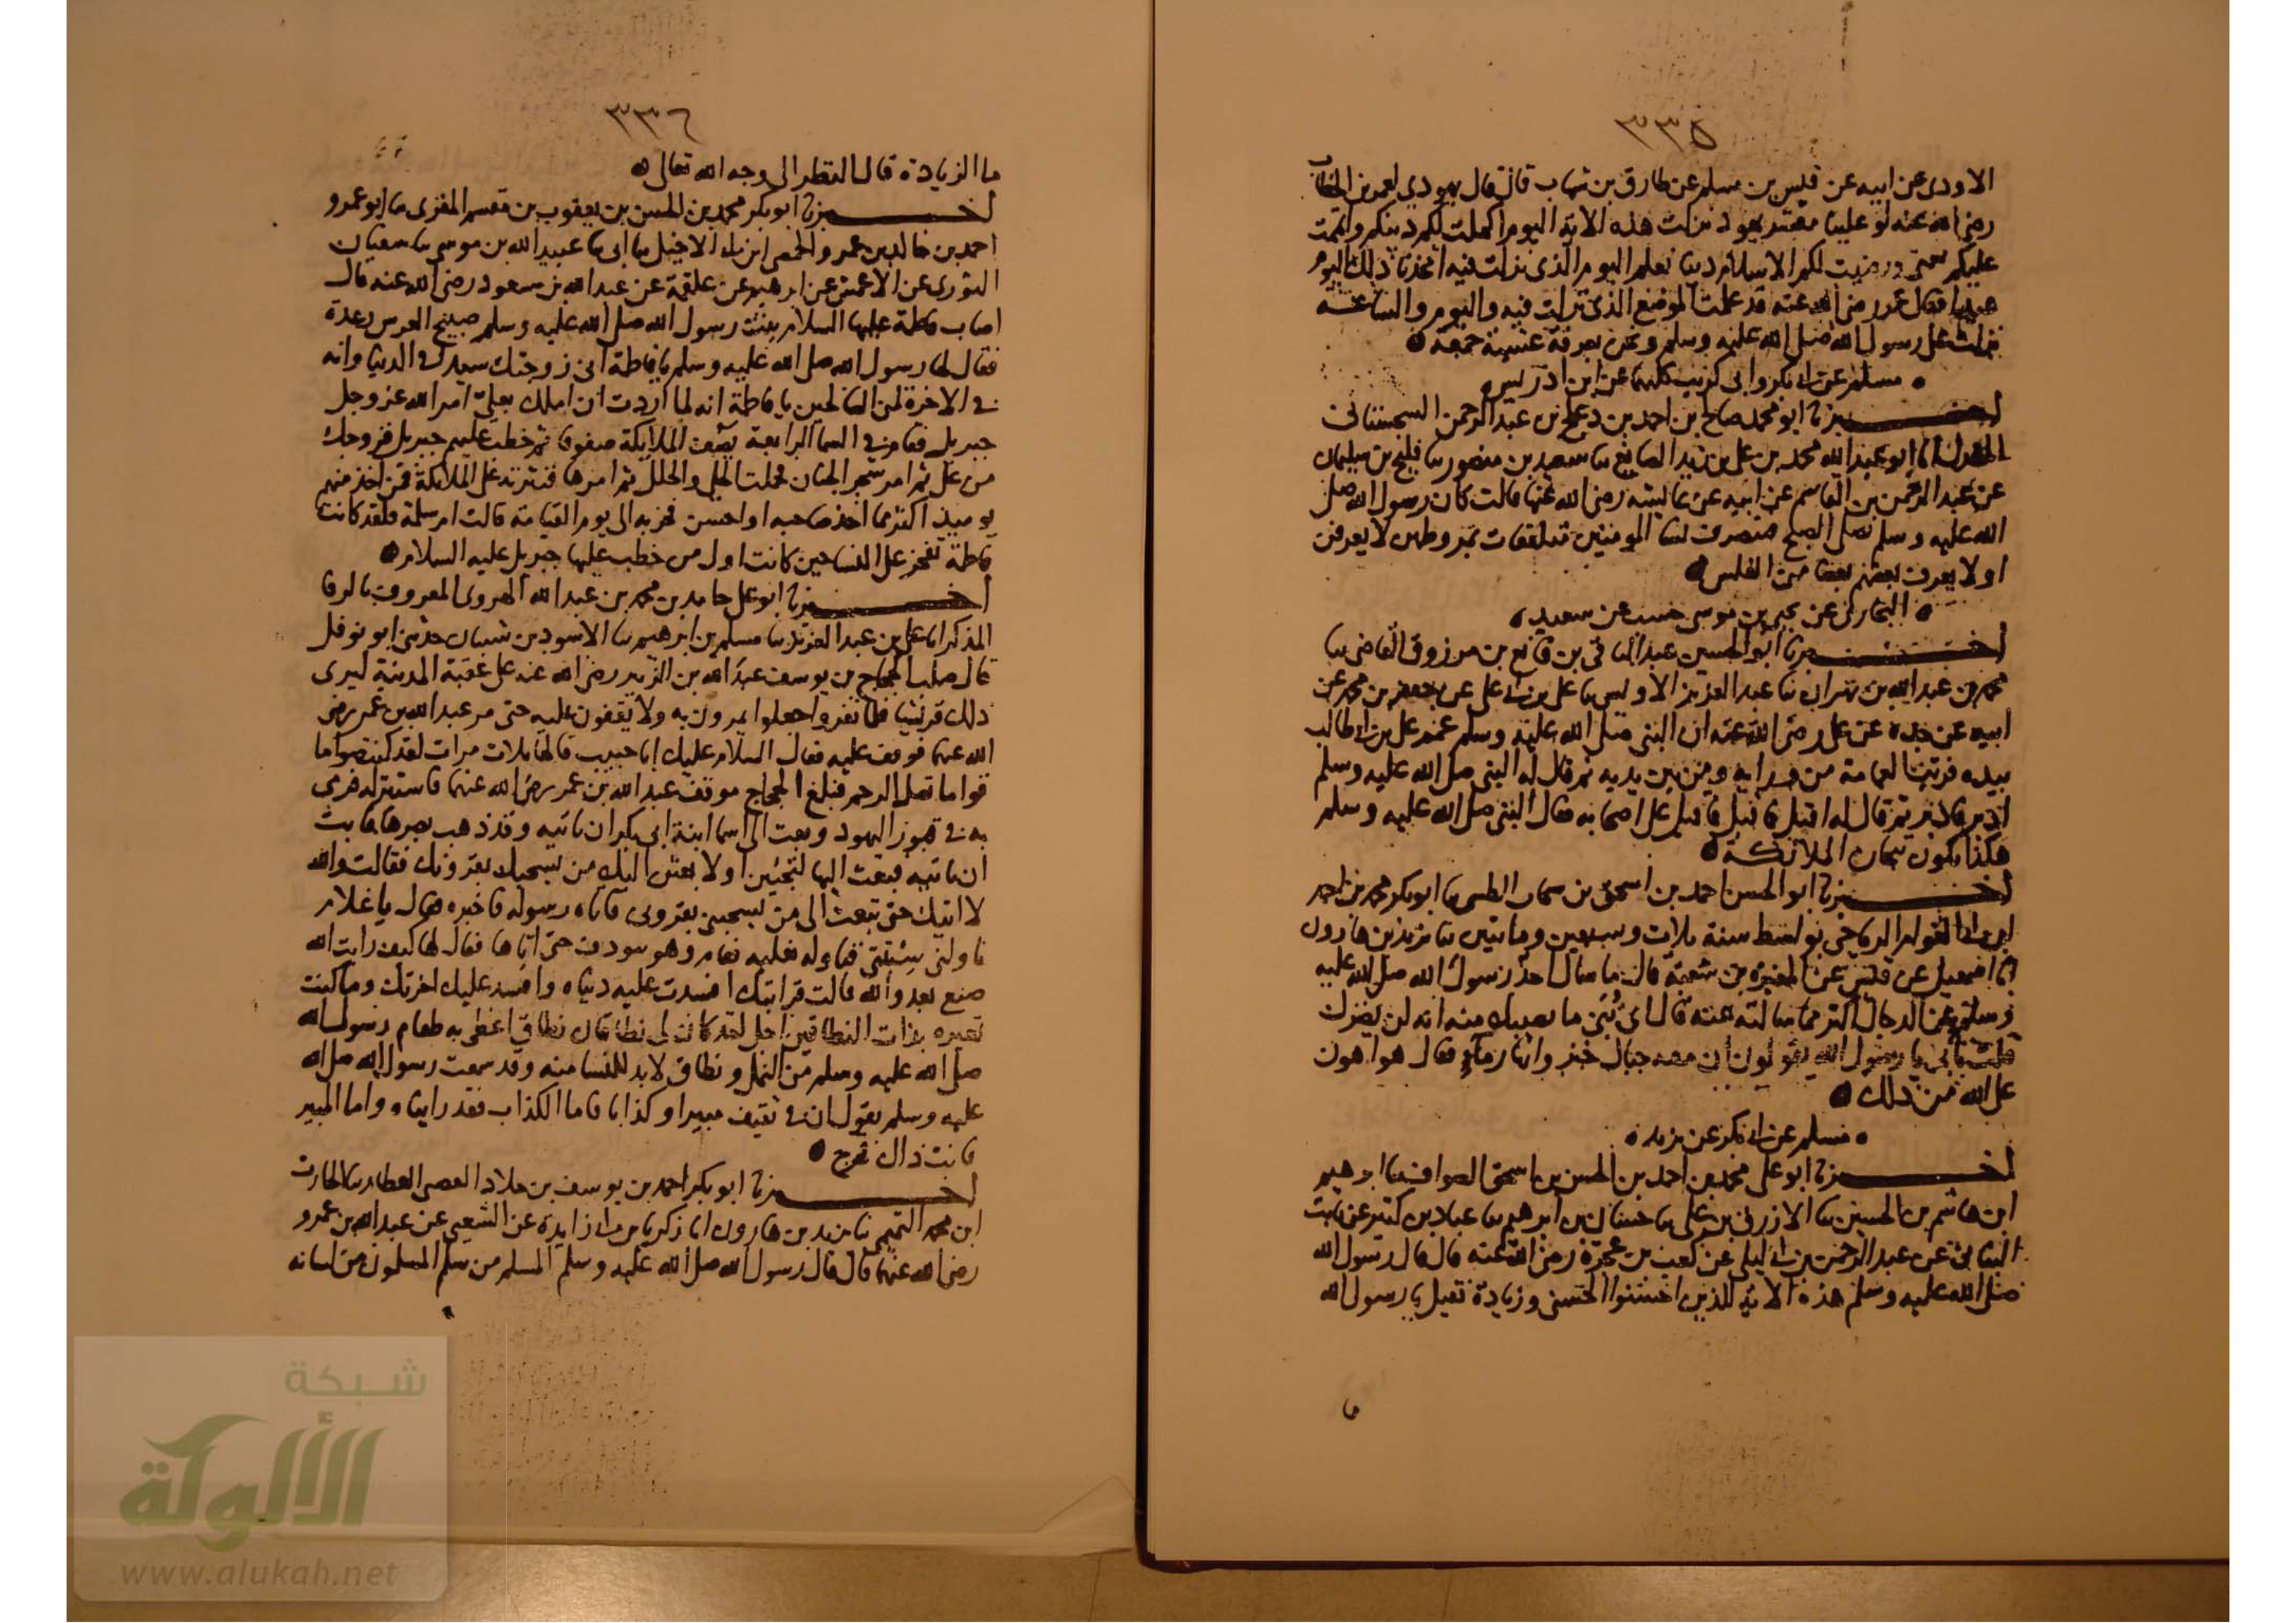 ٣٣٥
الاودى عن ابيه عن قيس بن مسلم عن طارق بن شهاب قال قال يهودي لعمر بن الخطاب
رضى الله عنه لو علينا معشر يهود نزلت هذه الاية اليوم اكملت لكم دينكم واتممت
عليكم نعمتى ورضيت لكم الاسلام دينا نعلم اليوم الذى نزلت فيه اتخذنا ذلك اليوم
عيدا فقال عمر رضى الله عنه قد علمت الموضع الذى نزلت فيه واليوم والساعة
نزلت على رسول الله صلى الله عليه وسلم ونحن بعرفة عشية جمعة
مسلم عن ابى بكر وابى كريب كلهما عن ابن ادريس
اخبرنا ابو محمد صالح بن احمد بن دعلج بن عبد الرحمن السجستانى
المعدل انا ابو عبد الله محمد بن على بن زيد الصايغ نا سعيد بن منصور نا فليح بن سليمان
عن عبد الرحمن بن القاسم عن ابيه عن عايشه رضى الله عنها قالت كان رسول الله صلى
الله عليه وسلم يصلى الصبح فتنصرف نسا المومنين متلفعات بمروطهن لا يعرفن
او لا يعرف بعضهم بعضا من الغلس
البخارى عن يحيى بن موسى عن سعيد
اخبرنا ابو الحسين عبد الباقى بن قانع بن مرزوق القاضى نا
محمد بن عبد الله بن مهران نا عبد العزيز الاويسى نا على بن ابى على عن جعفر بن محمد عن
ابيه عن جده عن على رضى الله عنه ان النبى صلى الله عليه وسلم عمم على بن ابى طالب
بيده فرتب العمامة من ورايه ومن بين يديه ثم قال له النبى صلى الله عليه وسلم
ادبر فادبر ثم قال له اقبل فاقبل فاقبل على اصحابه فقال النبى صلى الله عليه وسلم
هكذا تكون تيجان الملائكة
اخبرنا ابو الحسن احمد بن اسحق بن الطيبى نا ابو بكر محمد بن احمد
ابن ابى العوام الرياحى بواسط سنة ثلاث وسبعين وماتين نا يزيد بن هارون
انا اسمعيل عن قيس عن المغيرة بن شعبة قال ما سال احد رسول الله صلى الله عليه
وسلم عن الدجال اكثر مما سالته عنه قال اى بنى ما يصيبك منه انه لن يضرك
قلت يا رسول الله يقولون ان معه جبال خبز وانهار ماء فقال هو اهون
على الله من ذلك
مسلم عن ابى بكر عن يزيد
اخبرنا ابو على محمد بن احمد بن الحسن بن اسحق الصواف نا ابرهيم
ابن هاشم بن الحسين نا الازرق بن على نا حسان بن ابرهيم نا عباد بن كثير عن ثابت
البنانى عن عبد الرحمن بن ابى ليلى عن كعب بن عجرة رضى الله عنه قال قال رسول الله
صلى الله عليه وسلم هذه الاية للذين احسنوا الحسنى وزيادة قيل يا رسول الله
٣٣٦
ما الزيادة قال النظر الى وجه الله تعالى
اخبرنا ابو بكر محمد بن الحسن بن يعقوب بن مقسم المقرى نا ابو عمرو
احمد بن خالد بن عمرو الحمصى ابن الاخيل نا ابى نا عبيد الله بن موسى نا سفيان
الثورى عن الاعمش عن ابرهيم عن علقمة عن عبد الله بن مسعود رضى الله عنه قال
اصاب فاطمة عليها السلام بنت رسول الله صلى الله عليه وسلم صبيح العرس رعدة
فقال لها رسول الله صلى الله عليه وسلم يا فاطمة انى زوجتك سيدا فى الدنيا وانه
فى الاخرة لمن الصالحين يا فاطمة انه لما اردت ان املك بعلى امر الله عز وجل
جبريل فقام فى السما الرابعة يصف الملايكة صفوفا ثم خطب عليهم جبريل فزوجك
من على ثم امر شجر الجنان فحملت الحلى والحلل ثم امرها فنثرته على الملايكة فمن اخذ منهم
يوميذ اكثر مما اخذ صاحبه او احسن فخر به الى يوم القيامة قالت ام سلمة فلقد كانت
فاطمة تفخر على النسا حين كانت اول من خطب عليها جبريل عليه السلام
اخبرنا ابو على حامد بن محمد بن عبد الله الهروى المعروف بالرفا
المذكر انا على بن عبد العزيز نا مسلم بن ابرهيم نا الاسود بن شيبان حدثنى ابو نوفل
قال صلب الحجاج بن يوسف عبد الله بن الزبير رضى الله عنه على عقبة المدينة ليرى
ذلك قريشا فلما نفروا جعلوا يمرون به ولا يقفون عليه حتى مر عبد الله بن عمر رضى
الله عنهما فوقف عليه فقال السلام عليك ابا خبيب قالها ثلاث مرات لقد كنت صواما
قواما تصل الرحم فبلغ الحجاج موقف عبد الله بن عمر رضى الله عنهما فاستنزله فرمى
به فى قبور اليهود وبعث الى اسما ابنة ابى بكر ان تاتيه وقد ذهب بصرها فابت
ان تاتيه فبعث اليها لتجيين او لابعثن اليك من يسحبك بقرونك فقالت والله
لا اتيك حتى تبعث الى من يسحبنى بقرونى فاتاه رسوله فاخبره فقال يا غلام
ناولنى سبتيتى فناوله نعليه فقام وهو يتوذف حتى اتاها فقال لها كيف رايت الله
صنع بعدو الله قالت قرايتك افسدت عليه دنياه وافسد عليك اخرتك وما كنت
تعيره بذات النطاقين اجل لقد كان لى نطاقان نطاق اغطى به طعام رسول الله
صلى الله عليه وسلم من النمل ونطاق لا بد للنسا منه وقد سمعت رسول الله صلى الله
عليه وسلم يقول ان فى ثقيف مبيرا وكذابا فاما الكذاب فقد رايناه واما المبير
فانت ذاك فخرج
اخبرنا ابو بكر احمد بن يوسف بن خلاد العطار نا الحارث
ابن محمد التميمى نا يزيد بن هارون انا زكريا بن ابى زايدة عن الشعبى عن عبد الله بن عمرو
رضى الله عنهما قال قال رسول الله صلى الله عليه وسلم المسلم من سلم المسلمون من لسانه
شبكة
الألوكة
www.alukah.net